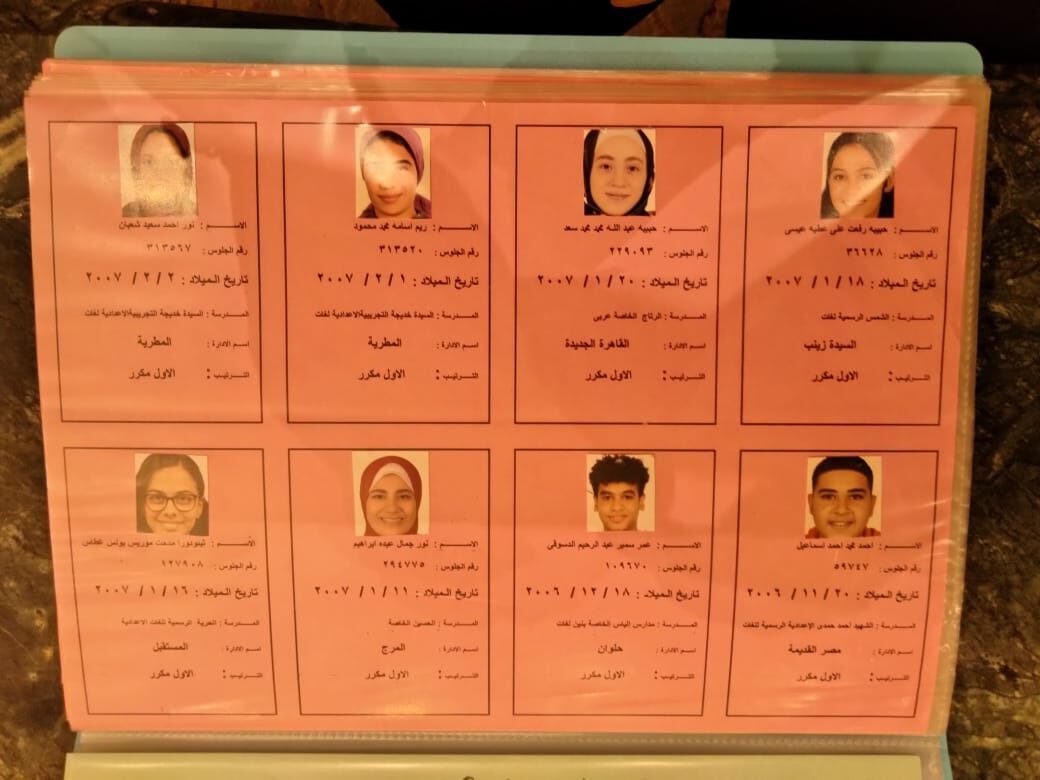 الاســـم : حبيبه رفعت على عطيه عيسى
رقم الجلوس : ٣٦٦٢٨
تاريخ الميلاد : ١٨ / ١ / ٢٠٠٧
المـدرسة : الشمس الرسمية لغات
اسم الادارة : السيدة زينب
التـرتيب : الاول مكرر
الاســـم : حبيبه عبد الله محمد محمد سعد
رقم الجلوس : ٢٢٩٠٩٣
تاريخ الميلاد : ٢٠ / ١ / ٢٠٠٧
المـدرسة : الرتاج الخاصة عربى
اسم الادارة : القاهرة الجديدة
التـرتيب : الاول مكرر
الاســـم : ريم اسامه محمد محمود
رقم الجلوس : ٣١٣٥٢٠
تاريخ الميلاد : ١ / ٢ / ٢٠٠٧
المـدرسة : السيدة خديجة التجريبيةالاعدادية لغات
اسم الادارة : المطرية
التـرتيب : الاول مكرر
الاســـم : نور احمد سعيد شعبان
رقم الجلوس : ٣١٣٥٦٧
تاريخ الميلاد : ٢ / ٢ / ٢٠٠٧
المـدرسة : السيدة خديجة التجريبيةالاعدادية لغات
اسم الادارة : المطرية
التـرتيب : الاول مكرر
الاســـم : احمد محمد احمد اسماعيل
رقم الجلوس : ٥٩٧٤٧
تاريخ الميلاد : ٢٠ / ١١ / ٢٠٠٦
المـدرسة : الشهيد احمد حمدى الإعدادية الرسمية للغات
اسم الادارة : مصر القديمة
التـرتيب : الاول مكرر
الاســـم : عمر سمير عبد الرحيم الدسوقى
رقم الجلوس : ١٠٩٦٧٠
تاريخ الميلاد : ١٨ / ١٢ / ٢٠٠٦
المـدرسة : مدارس إلياس الخاصة بنين لغات
اسم الادارة : حلوان
التـرتيب : الاول مكرر
الاســـم : نور جمال عبده ابراهيم
رقم الجلوس : ٢٩٤٧٧٥
تاريخ الميلاد : ١١ / ١ / ٢٠٠٧
المـدرسة : الحسين الخاصة
اسم الادارة : المرج
التـرتيب : الاول مكرر
الاســـم : ثيؤدورا مدحت موريس بولس غطاس
رقم الجلوس : ١٢٧٩٠٨
تاريخ الميلاد : ١٦ / ١ / ٢٠٠٧
المـدرسة : الحرية الرسمية للغات الاعدادية
اسم الادارة : المستقبل
التـرتيب : الاول مكرر